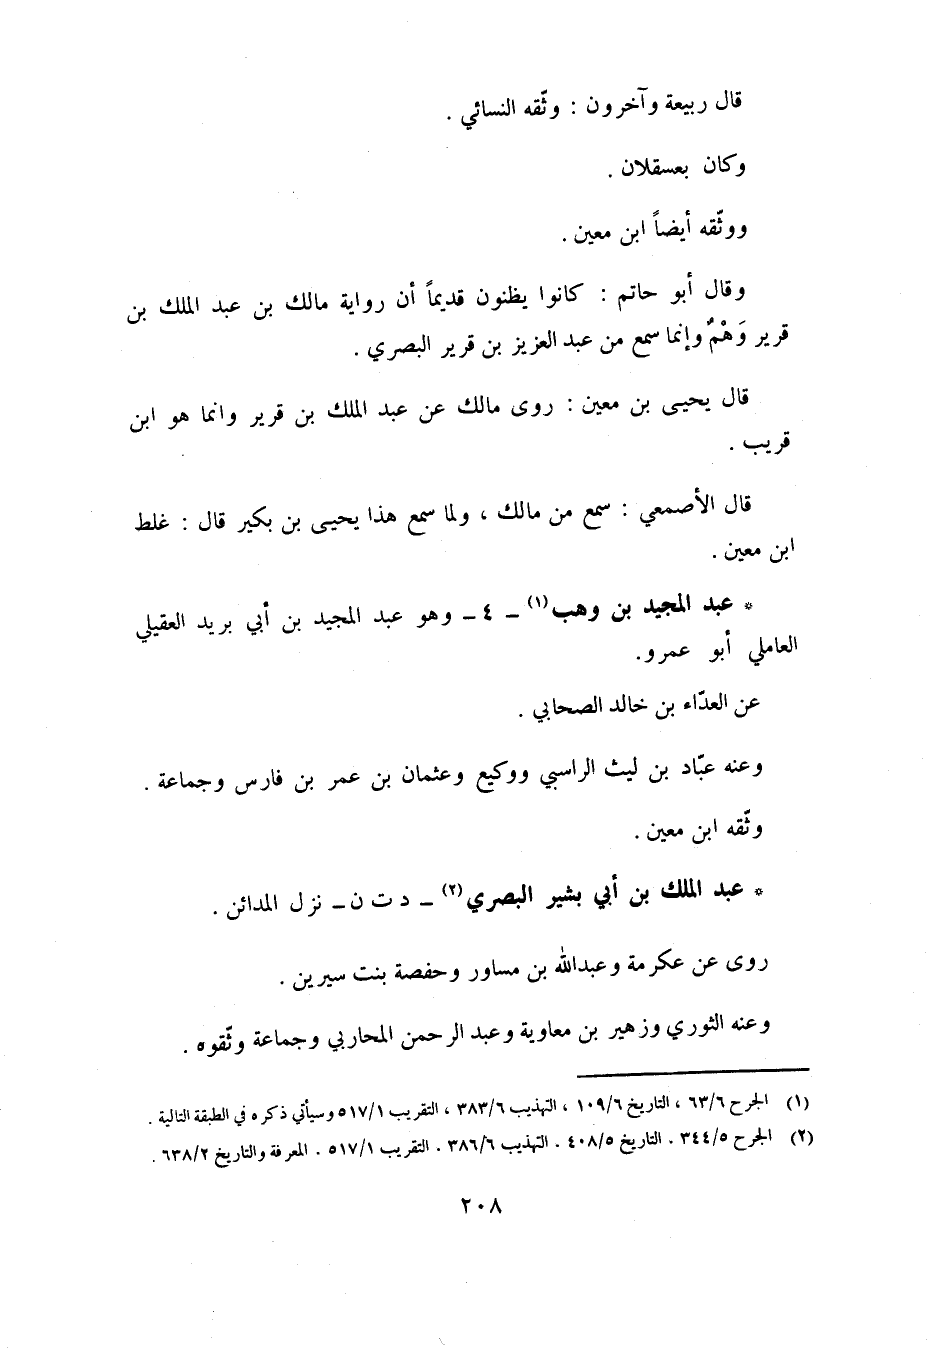 قال ربيعة وآخرون : وثّقه النسائي .
وكان بعسقلان .
ووثّقه أيضاً ابن معين .
وقال أبو حاتم : كانوا يظنون قديماً أن رواية مالك بن عبد الملك بن
قرير وَهْمٌ وإنما سمع من عبد العزيز بن قرير البصري .
قال يحيى بن معين : روى مالك عن عبد الملك بن قرير وانما هو ابن
قريب .
قال الأصمعي : سمع من مالك ، ولما سمع هذا يحيى بن بكير قال : غلط
ابن معين .
* عبد المجيد بن وهب(١) ـ ٤ ـ وهو عبد المجيد بن أبي بريد العقيلي
العاملي أبو عمرو .
عن العدّاء بن خالد الصحابي .
وعنه عبّاد بن ليث الراسبي ووكيع وعثمان بن عمر بن فارس وجماعة .
وثّقه ابن معين .
* عبد الملك بن أبي بشير البصري(٢) ـ د ت ن ـ نزل المدائن .
روى عن عكرمة وعبدالله بن مساور وحفصة بنت سيرين .
وعنه الثوري وزهير بن معاوية وعبد الرحمن المحاربي وجماعة وثّقوه .
(١) الجرح ٦٣/٦ ، التاريخ ١٠٩/٦ ، التهذيب ٣٨٣/٦ ، التقريب ٥١٧/١ وسيأتي ذكره في الطبقة التالية .
(٢) الجرح ٣٤٤/٥ . التاريخ ٤٠٨/٥ . التهذيب ٣٨٦/٦ . التقريب ٥١٧/١ . المعرفة والتاريخ ٦٣٨/٢ .
٢٠٨